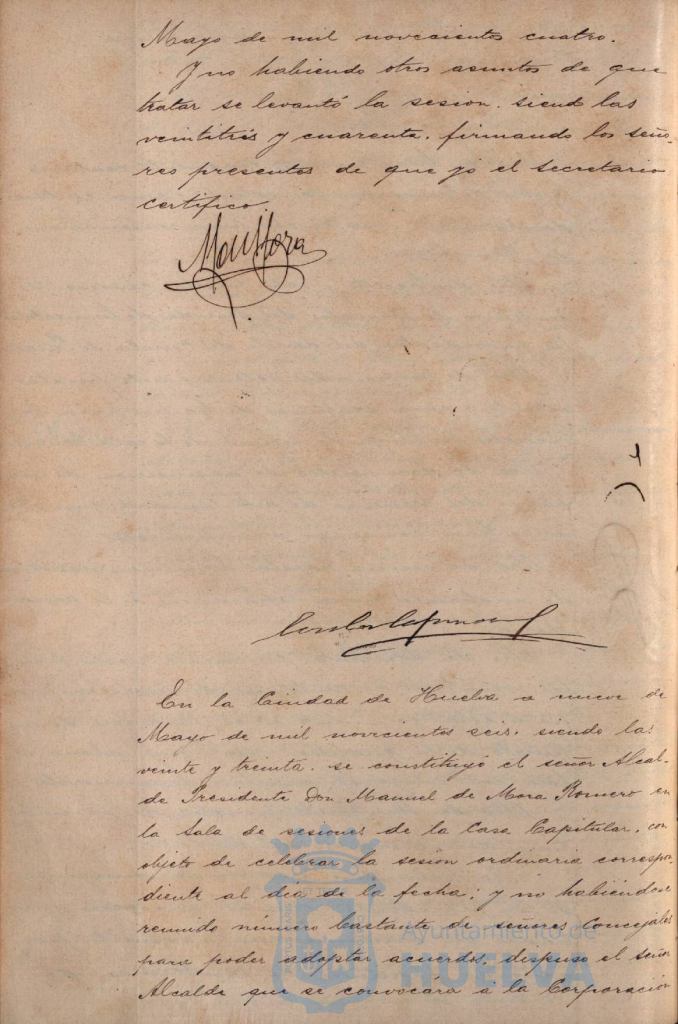 Mayo de mil novecientos cuatro.
Y no habiendo otros asuntos de que
tratar se levantó la sesion. siendo las
veintitrés y cuarenta. firmando los seño-
res presentes de que yo el secretario
certifico.
En la Ciudad de Huelva á nueve de
Mayo de mil novecientos seis. siendo las
veinte y treinta. se constituyó el señor Alcal-
de Presidente Don Manuel de Mora Romero en
la Sala de sesiones de la Casa Capitular. con
objeto de celebrar la sesion ordinaria correspon-
diente al dia de la fecha; y no habiéndose
reunido número bastante de señores Concejales
para poder adoptar acuerdos, dispuso el señor
Alcalde que se convocára á la Corporación
Ayuntamiento de
HUELVA